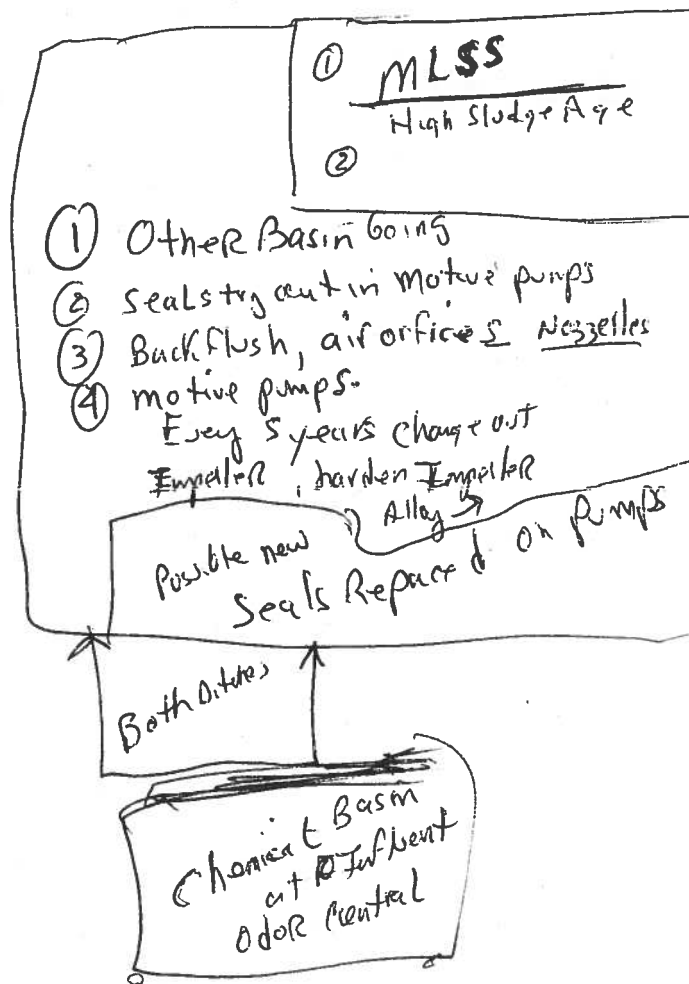 ① MLSS
High Sludge Age
②
① Other Basin Going
② Seals try out in motive pumps
③ Backflush, air orfices Nozzelles
④ motive pumps.
Evey 5 years change out
Impeller, harden Impeller
Alloy
Possible new
Seals Repaced on Pumps
Both Ditches
Chemical Basin
at Influent
Odor Control